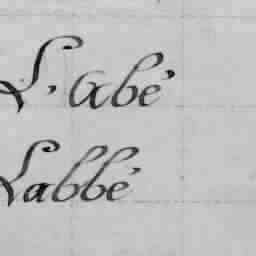 L'abé
Labbé